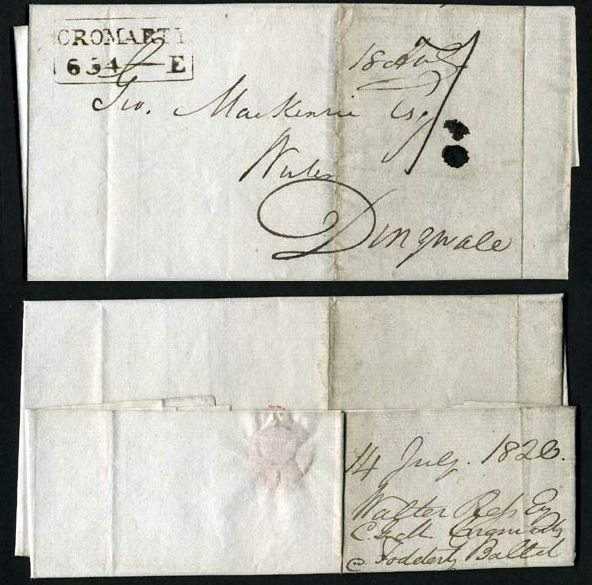 CROMARTY
634 E
Geo. MacKenzie Esq
Writer
Dingwall
14 July. 1826.
Walter Ross Esq
Cromarty
Fodderty